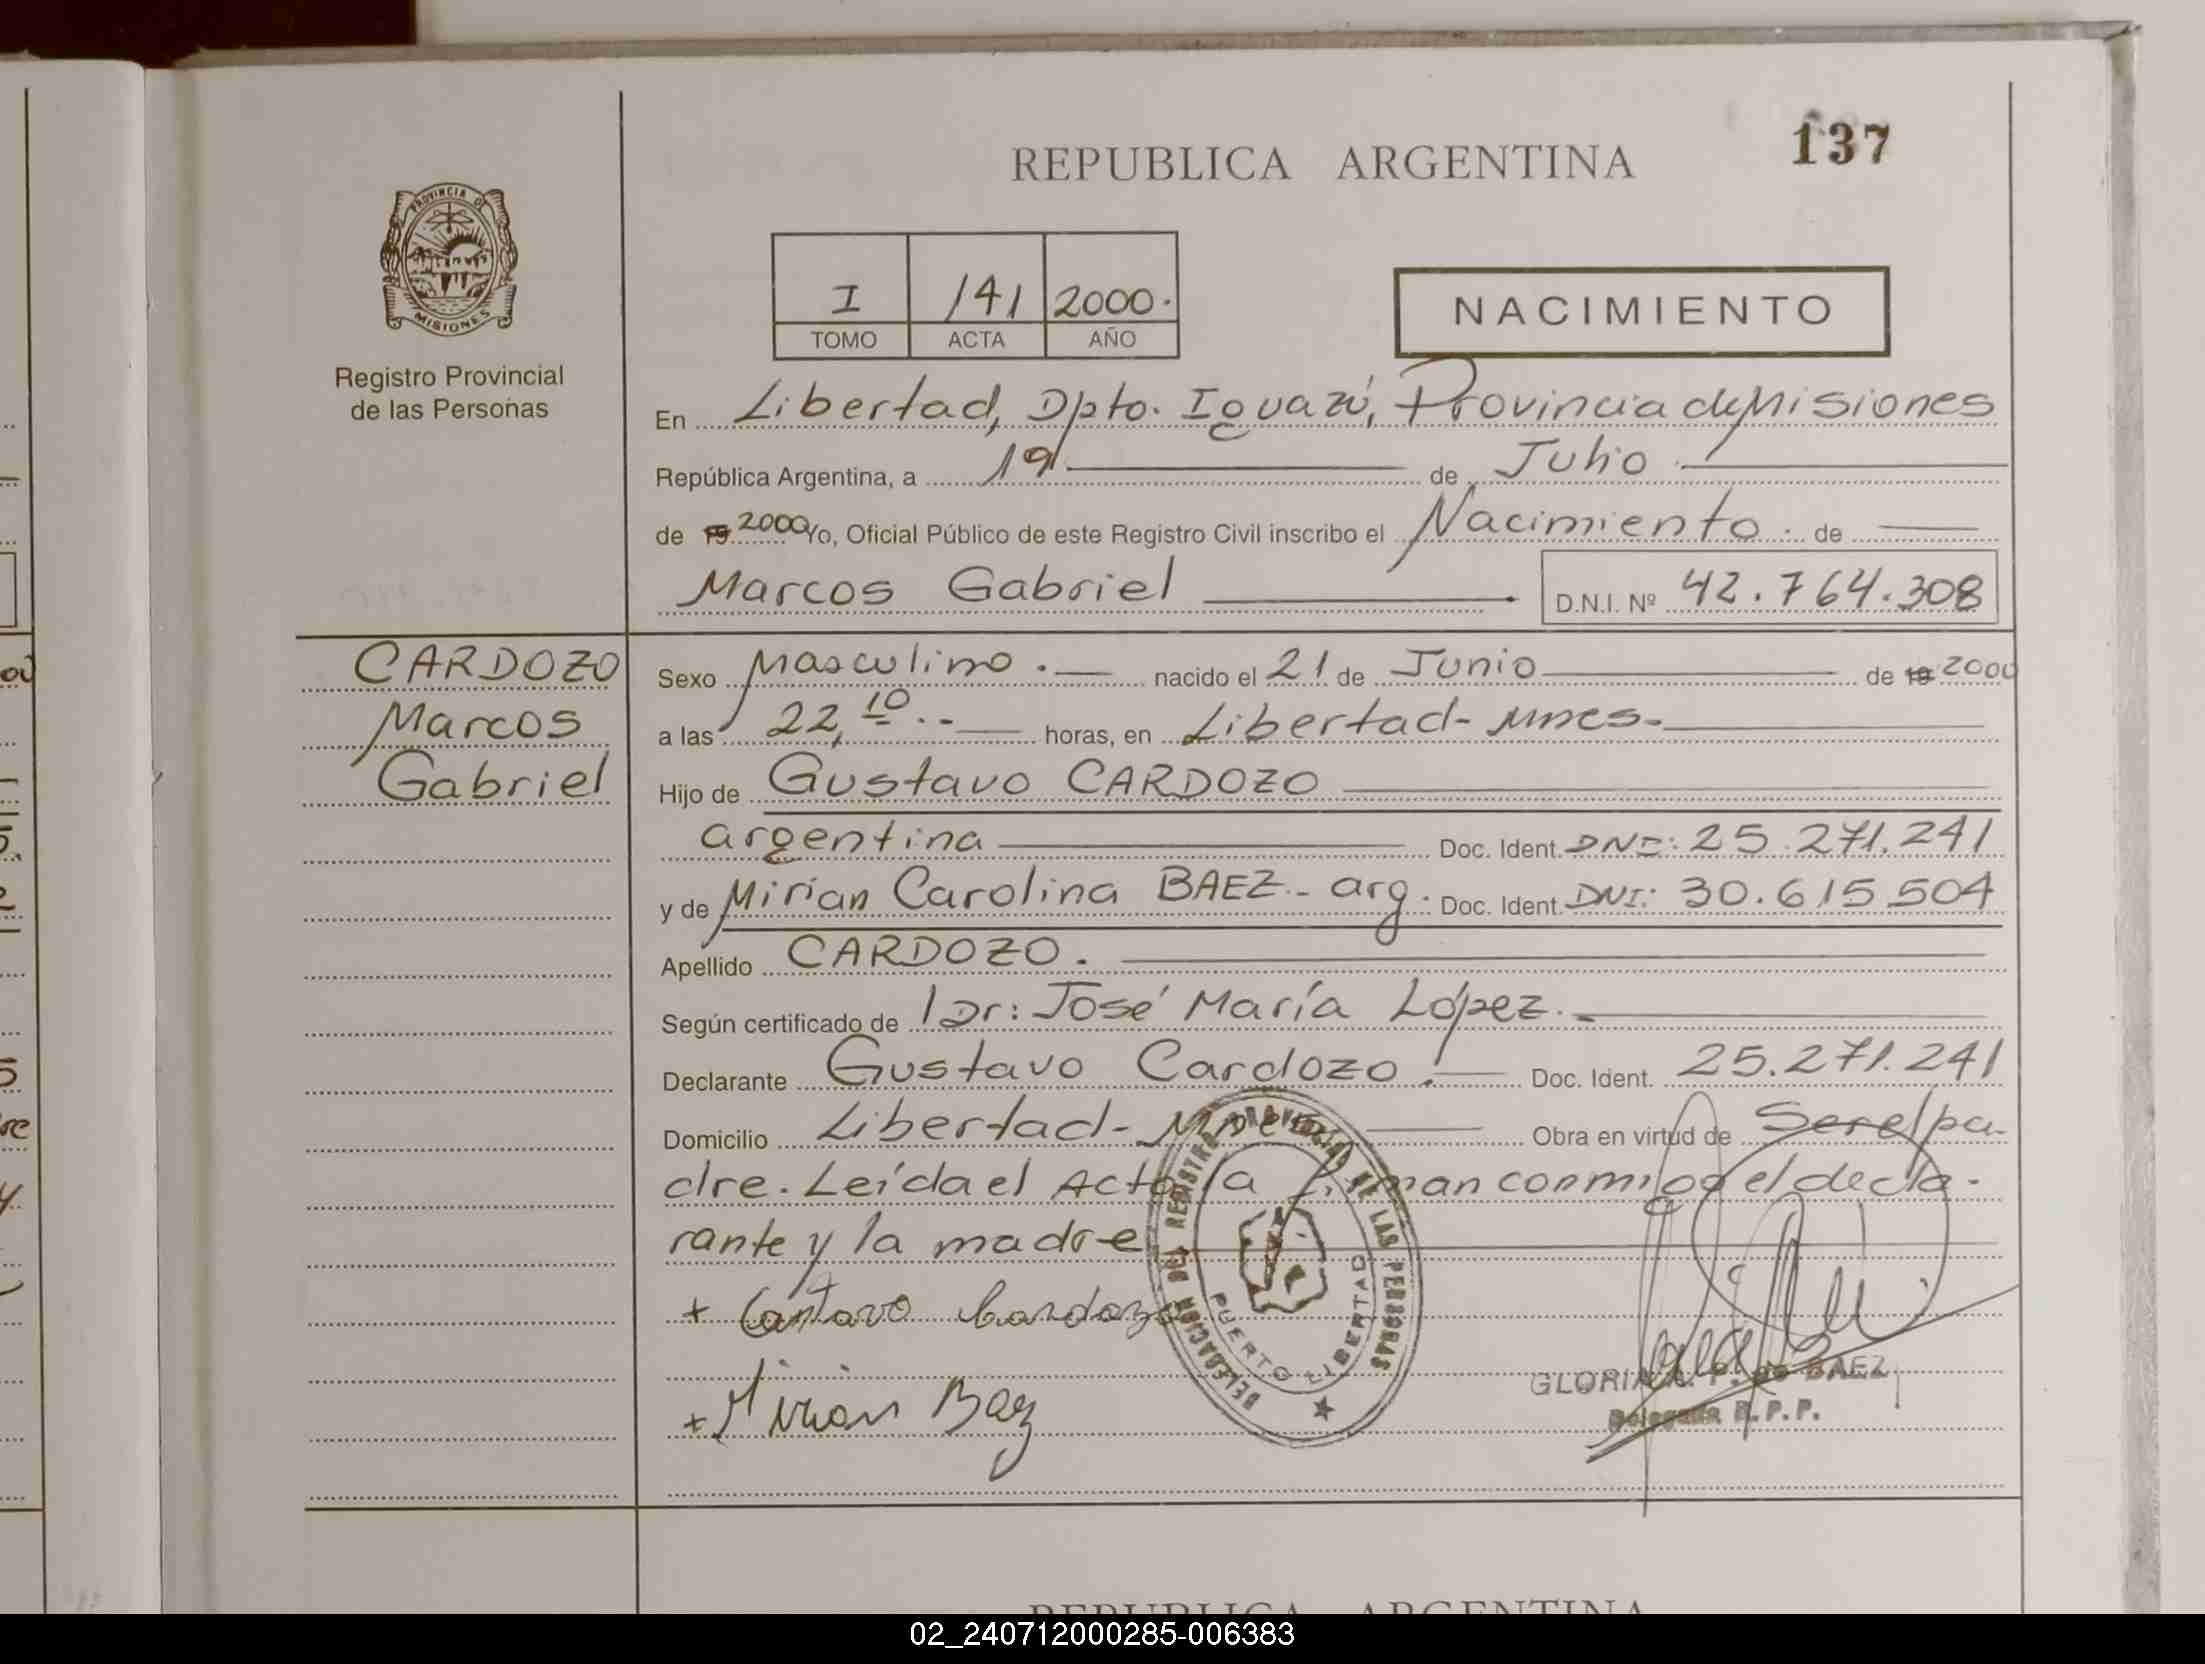 137
REPUBLICA ARGENTINA
PROVINCIA DE
MISIONES
Registro Provincial
de las Personas
I 141 2000.
TOMO ACTA AÑO
NACIMIENTO
En Libertad, Dpto. Iguazú, Provincia de Misiones
República Argentina, a 19 de Julio.
de 19 2000 Yo, Oficial Público de este Registro Civil inscribo el Nacimiento. de
Marcos Gabriel D.N.I. Nº 42.764.308
CARDOZO
Marcos
Gabriel
Sexo Masculino. nacido el 21 de Junio de 19 2000
a las 22,10.- horas, en Libertad- Mnes-
Hijo de Gustavo CARDOZO
argentina Doc. Ident. DNI: 25.271.241
y de Mirian Carolina BAEZ.- arg. Doc. Ident. DNI: 30.615.504
Apellido CARDOZO.
Según certificado de Dr: José María López.-
Declarante Gustavo Cardozo. Doc. Ident. 25.271.241
Domicilio Libertad- Obra en virtud de Ser el pa-
dre. Leída el Acta la firman conmigo el decla-
rante y la madre
+ Gustavo Cardozo
+ Mirian Baez
DELEGACION DEL REGISTRO PROVINCIAL DE LAS PERSONAS
PUERTO LIBERTAD
GLORIA A. P. de BAEZ
Delegada R.P.P.
REPUBLICA ARGENTINA
02_240712000285-006383